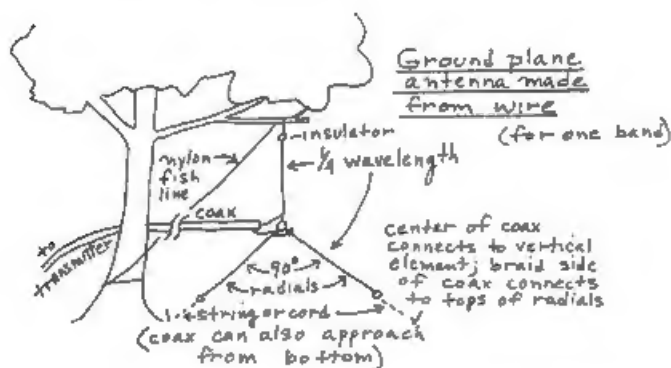 Ground plane
antenna made
from wire
(for one band)
insulator
1/4 wavelength
nylon
fish
line
coax
to
transmitter
center of coax
connects to vertical
element; braid side
of coax connects
to tops of radials
90°
radials
string or cord
(coax can also approach
from bottom)